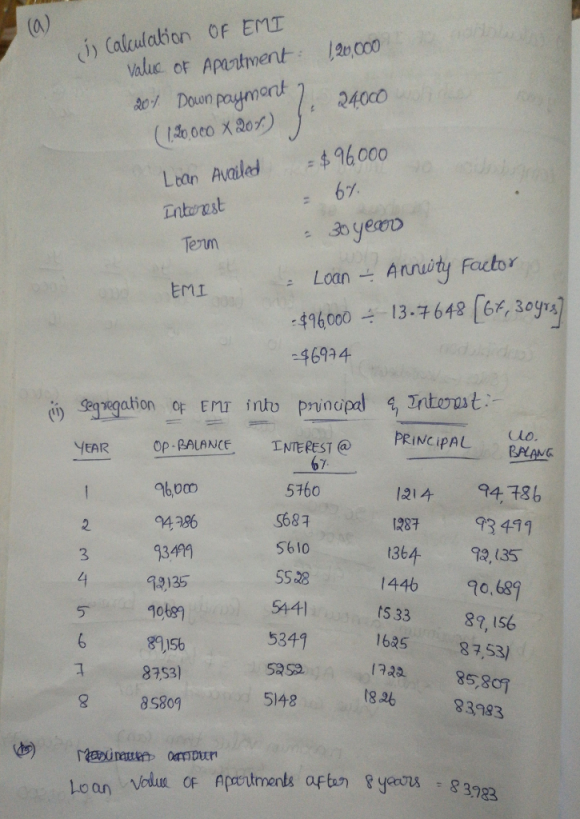 (a)
(i) Calculation OF EMI
Value OF Apartment = 1,20,000
20% Downpayment
(1,20,000 X 20%) } = 24000
Loan Availed = $96,000
Interest = 6%
Term = 30 years
EMI = Loan ÷ Annuity Factor
= $96,000 ÷ 13.7648 [6%, 30yrs]
= $6974
(ii) Segregation OF EMI into principal & Interest:-
YEAR OP.BALANCE INTEREST @ 6% PRINCIPAL CLO. BALANC
1 96,000 5760 1214 94,786
2 94786 5687 1287 93,499
3 93,499 5610 1364 92,135
4 92,135 5528 1446 90,689
5 90,689 5441 1533 89,156
6 89,156 5349 1625 87,531
7 87,531 5252 1722 85,809
8 85809 5148 1826 83,983
(b)
Loan Value OF Apartments after 8 years = 83,983